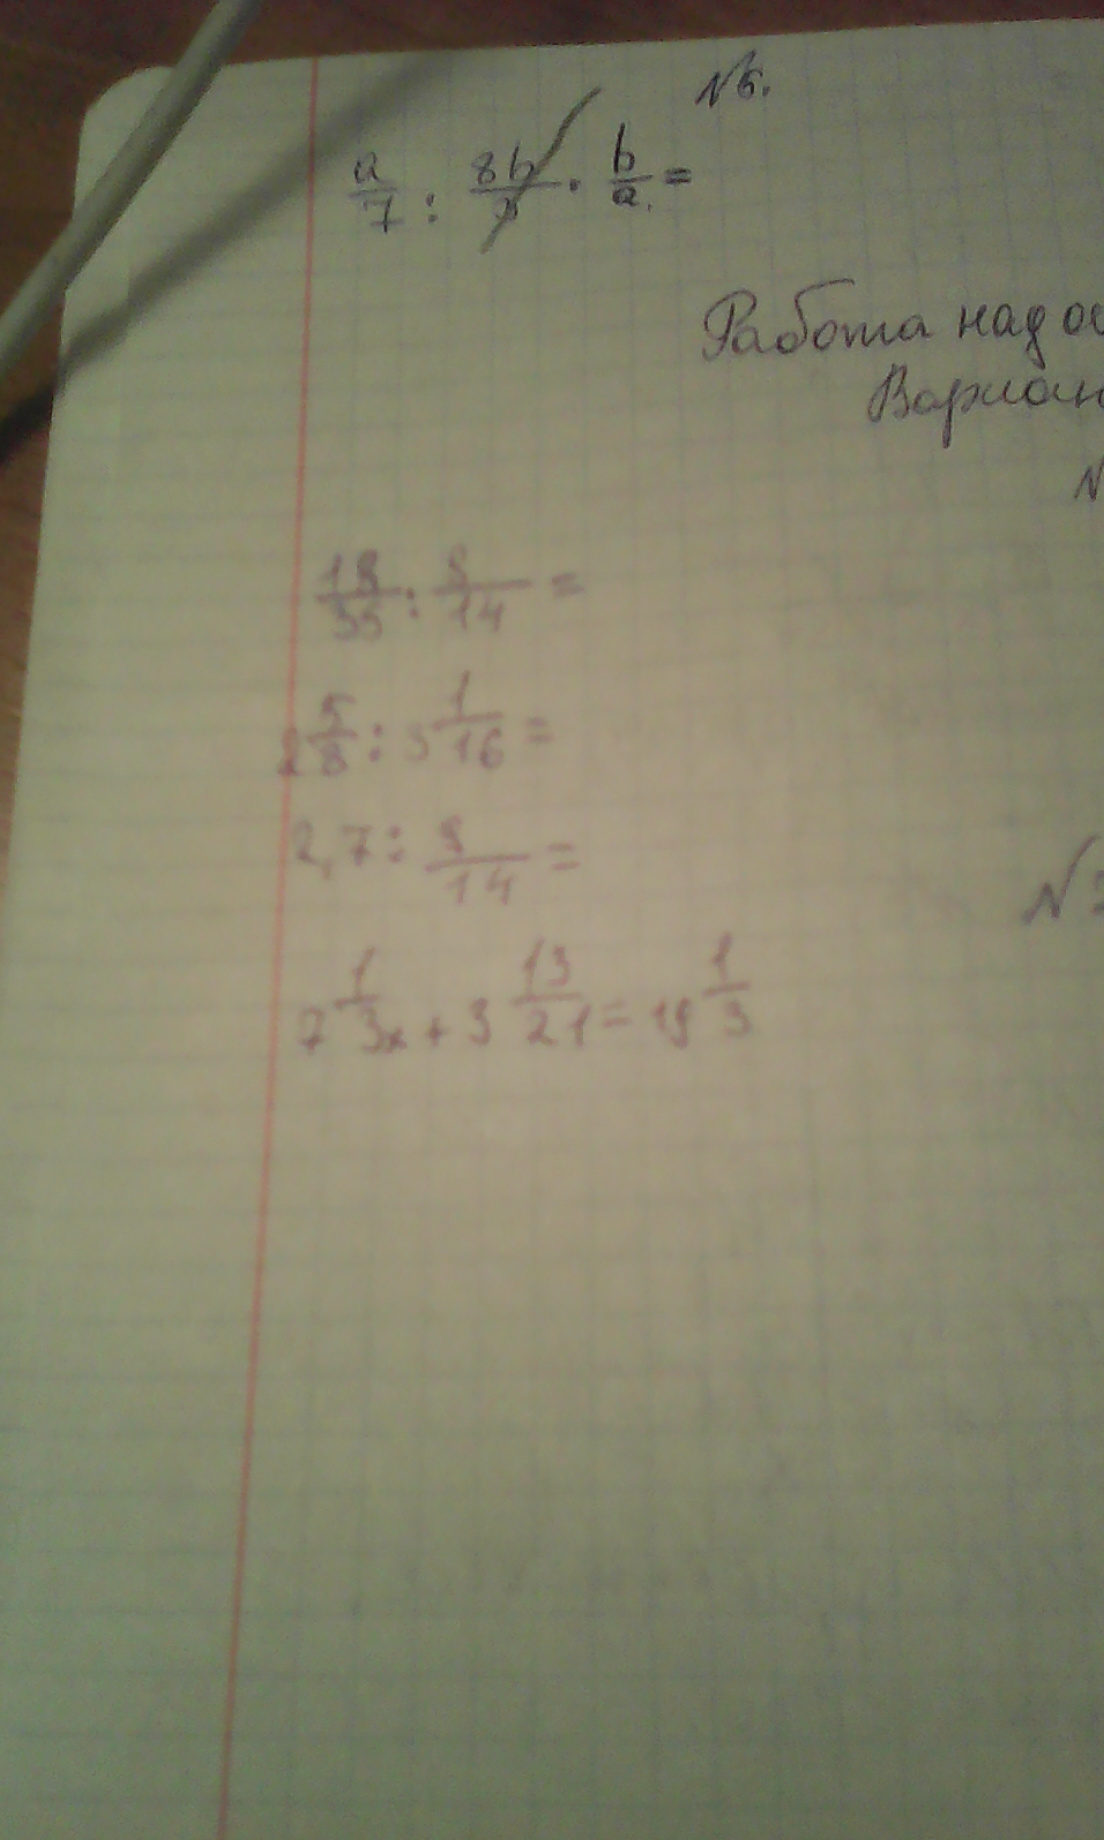 №6.
a/7 : 8b/ · b/a =
Работа над
Вариан
18/35 : 9/14 =
2 5/8 : 3 1/16 =
2,7 : 9/14 =
7 1/3x + 3 13/21 = 19 1/3